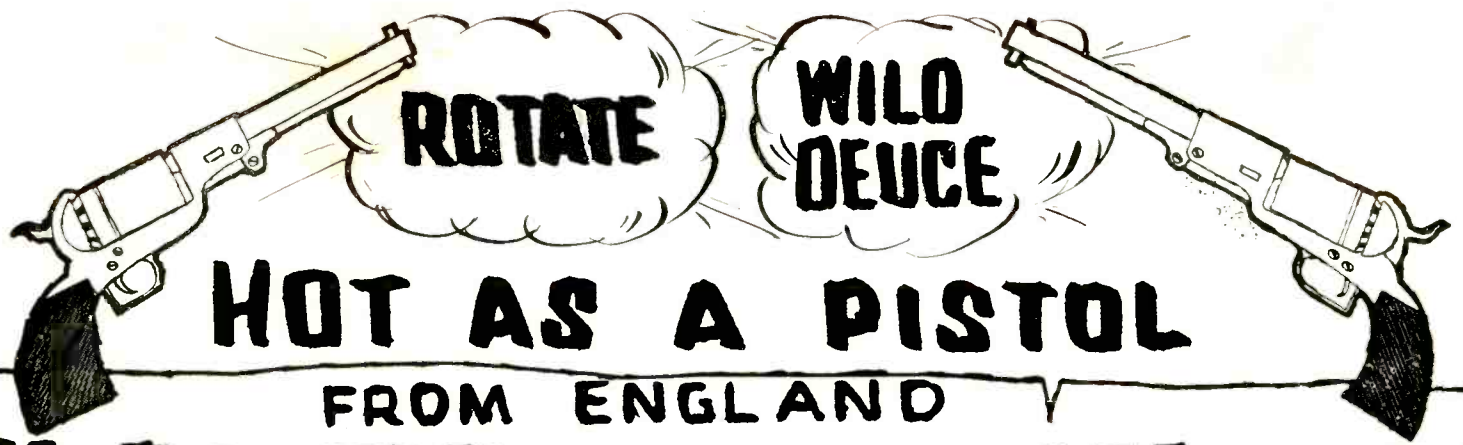 ROTATE
WILD
DEUCE
HOT AS A PISTOL
FROM ENGLAND